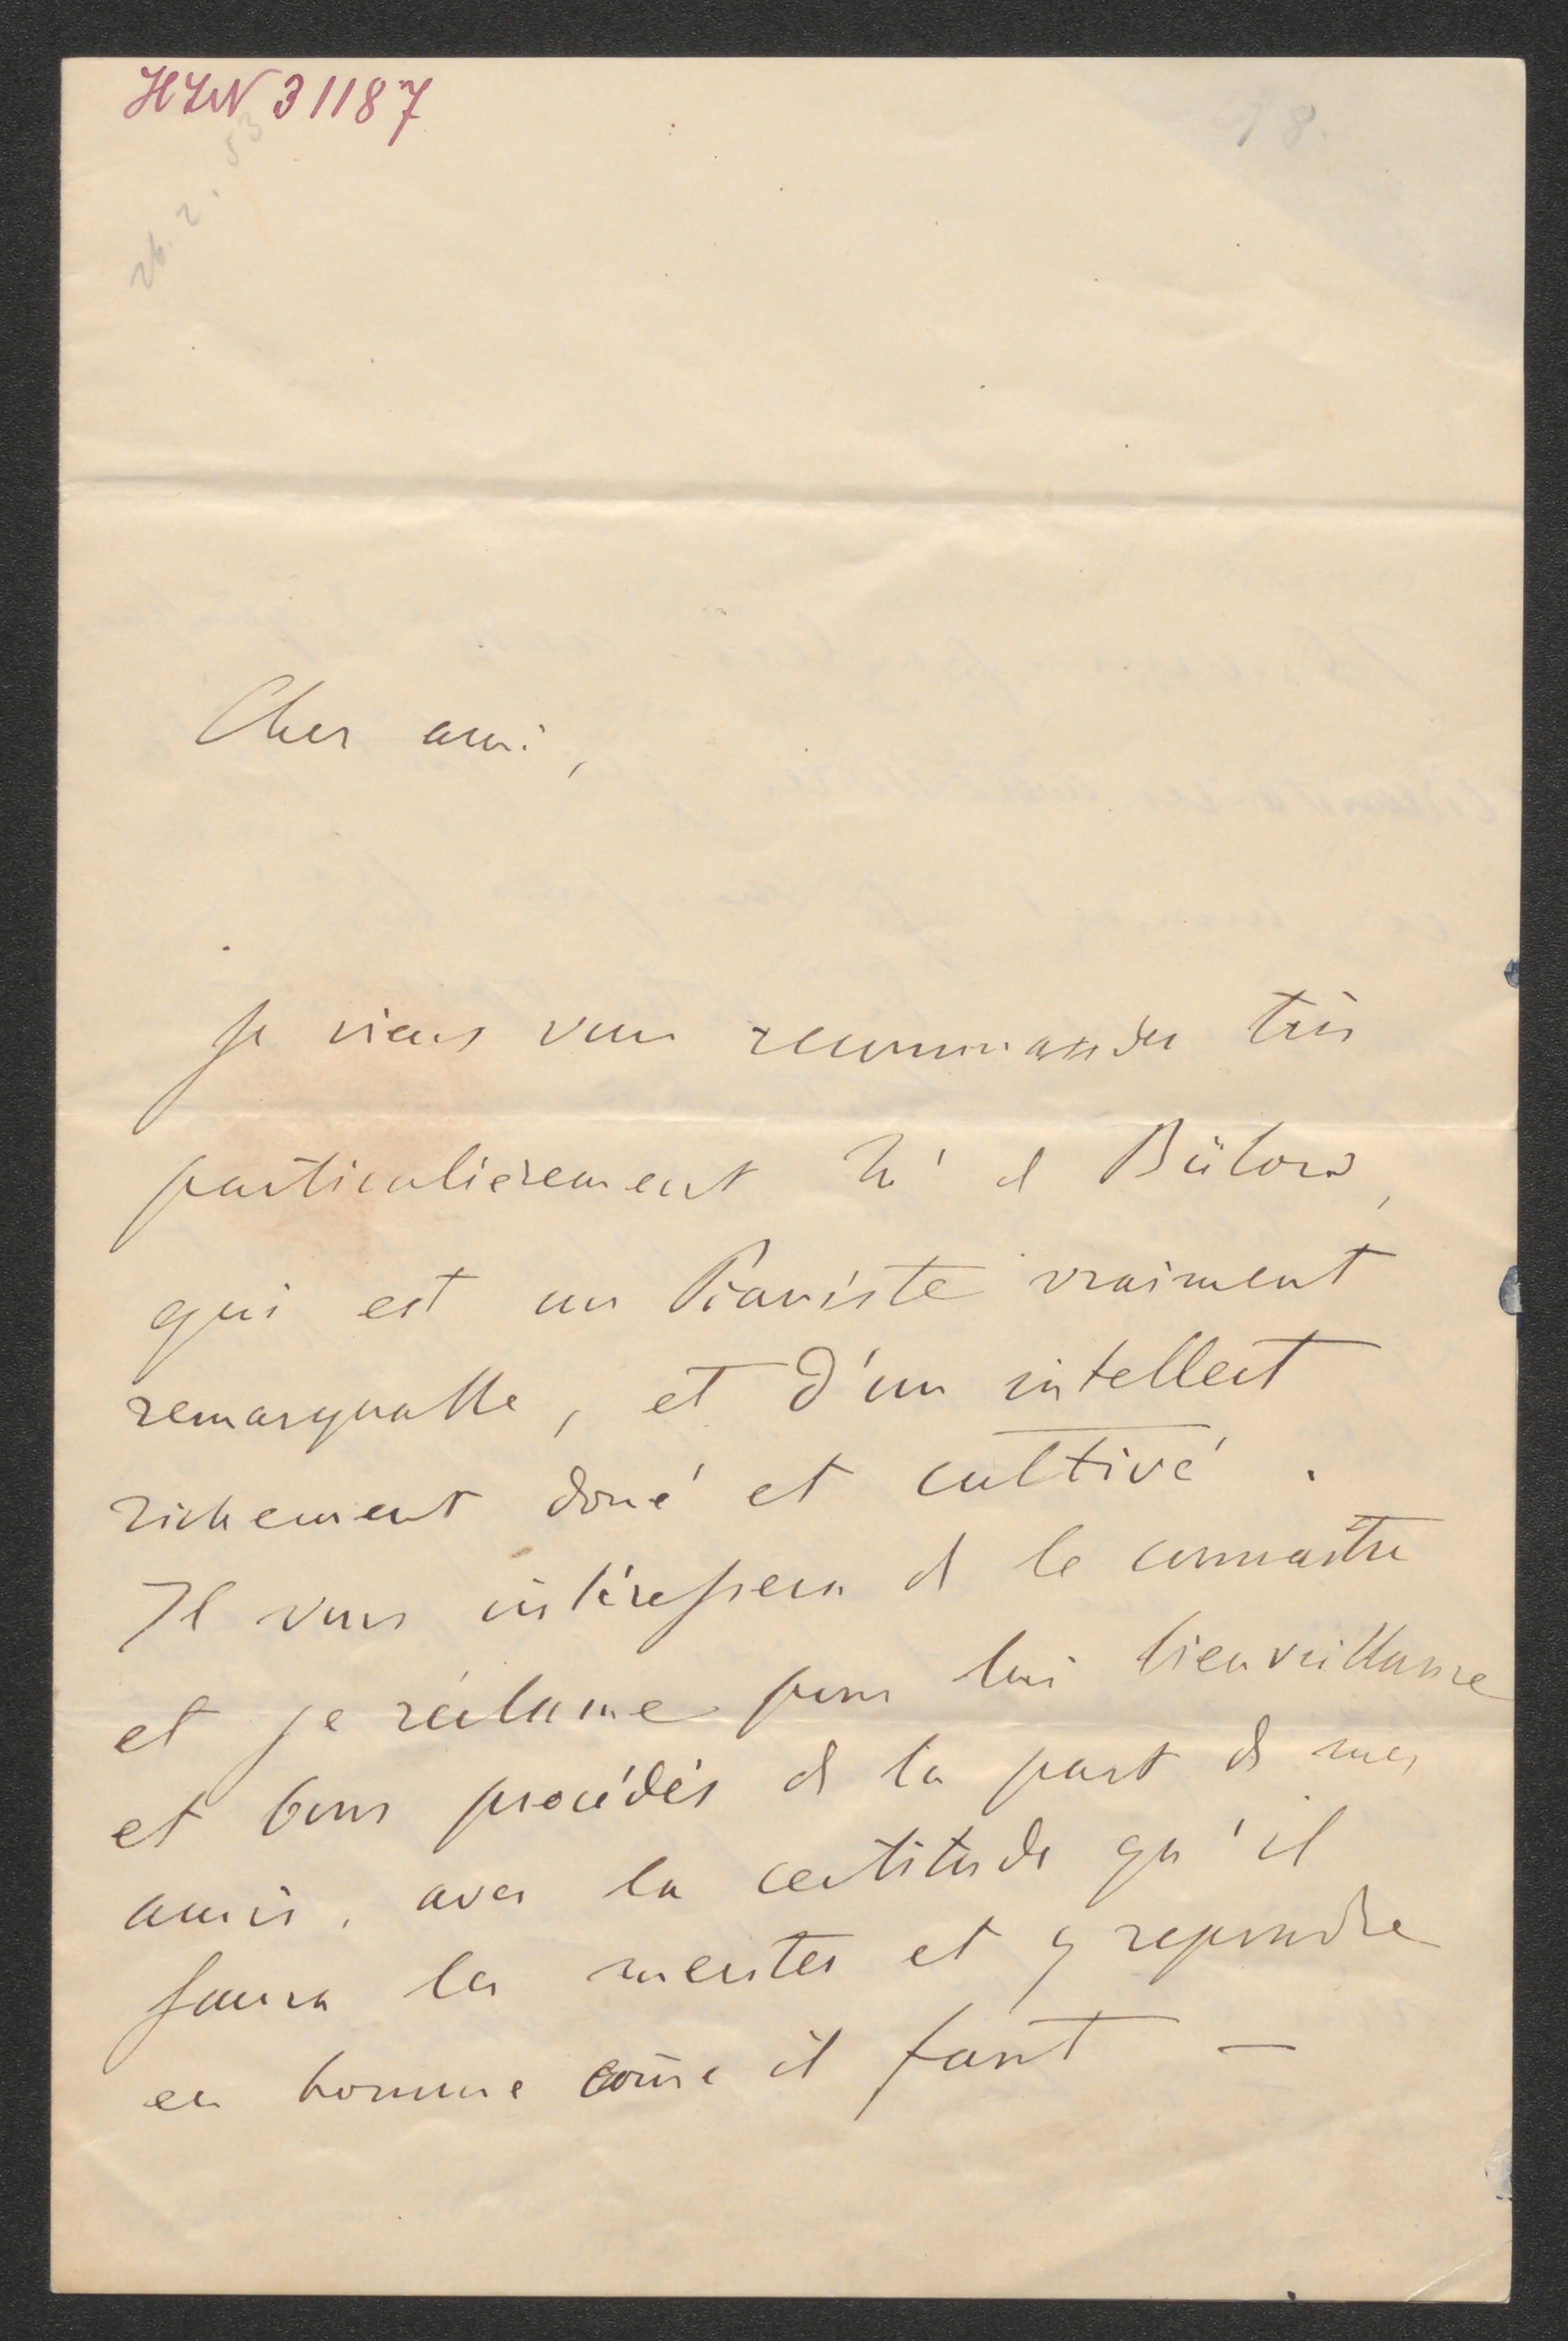 HIN 31187
98.
26. 2. 53
Cher ami,
Je viens vous recommander très
particulièrement Mr de Bülow,
qui est un Pianiste vraiment
remarquable, et d'un intellect
richement doué et cultivé.
Il vous intéressera de le connaître
et je réclame pour lui bienveillance
et bons procédés de la part de mes
amis, avec la certitude qu'il
saura les meriter et y repondre
en homme come il faut —